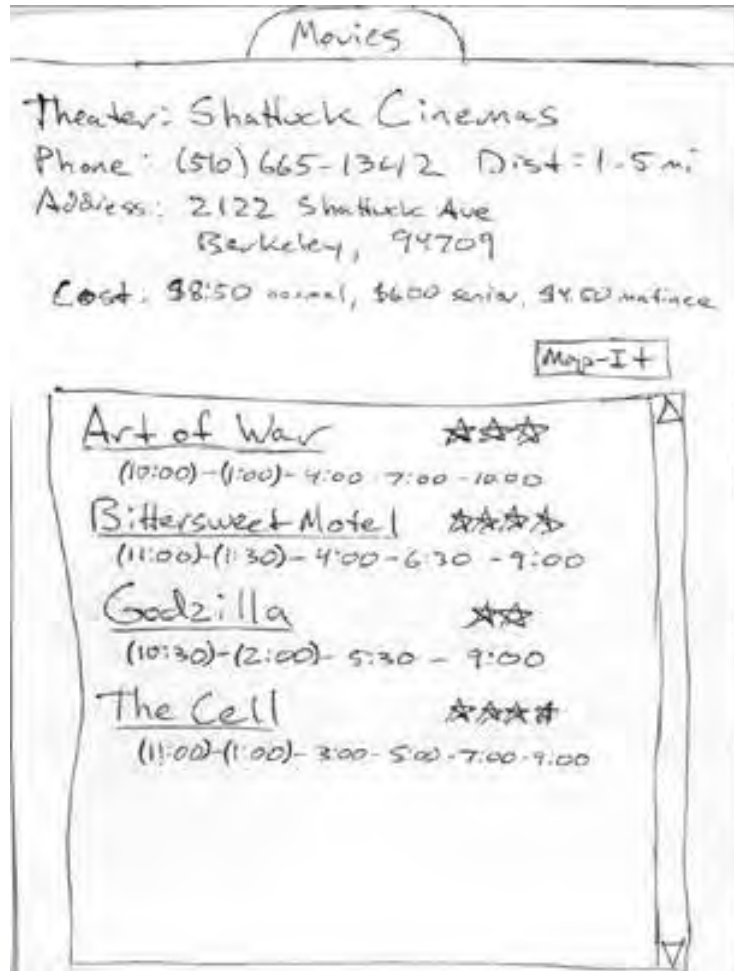 Movies
Theater: Shattuck Cinemas
Phone: (510) 665-1342 Dist: 1.5 mi
Address: 2122 Shattuck Ave
Berkeley, 94709
Cost: $8:50 normal, $6.00 senior, $4.50 matinee
Map-It
Art of War
(10:00)-(1:00)-4:00-7:00-10:00
Bittersweet Motel
(11:00)-(1:30)-4:00-6:30-9:00
Godzilla
(10:30)-(2:00)-5:30-9:00
The Cell
(11:00)-(1:00)-3:00-5:00-7:00-9:00